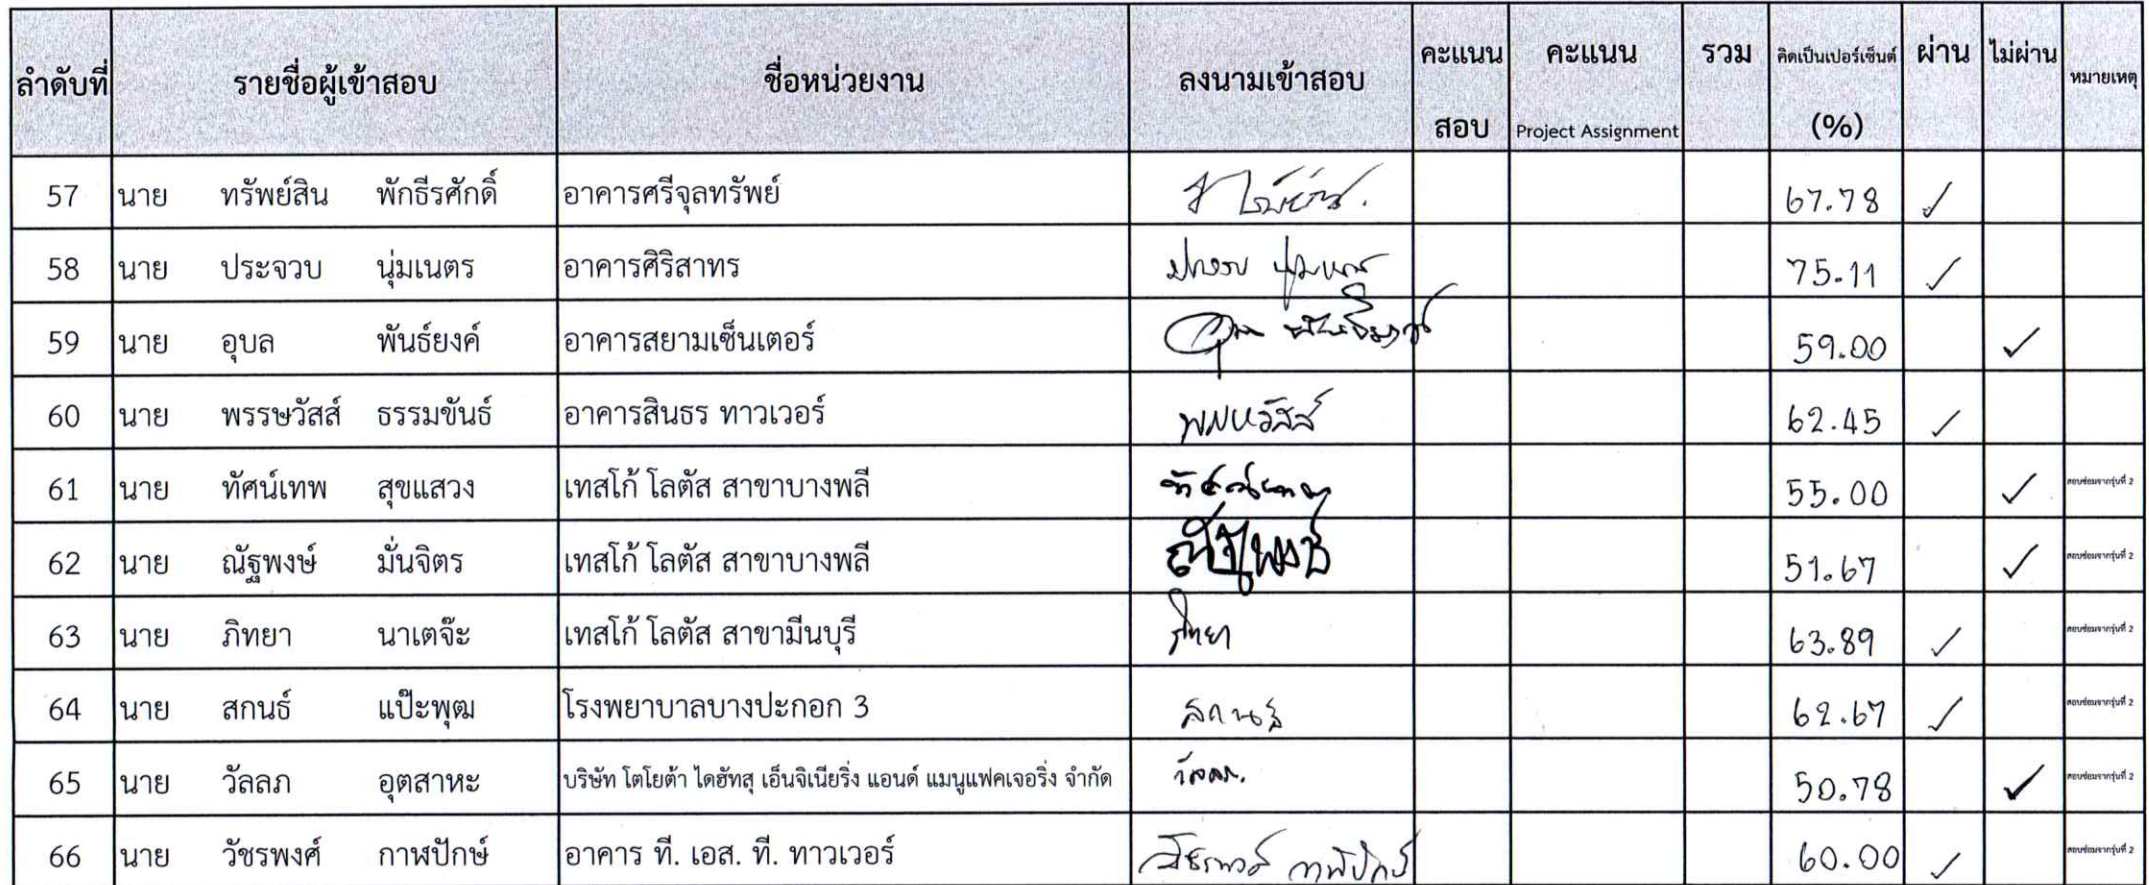 ลำดับที่ รายชื่อผู้เข้าสอบ ชื่อหน่วยงาน ลงนามเข้าสอบ คะแนนสอบ คะแนน Project Assignment รวม คิดเป็นเปอร์เซ็นต์ (%) ผ่าน ไม่ผ่าน หมายเหตุ
57 นาย ทรัพย์สิน พักธีรศักดิ์ อาคารศรีจุลทรัพย์ 67.78 ✓
58 นาย ประจวบ นุ่มเนตร อาคารศิริสาทร ประจวบ นุ่มเนตร 75.11 ✓
59 นาย อุบล พันธ์ยงค์ อาคารสยามเซ็นเตอร์ 59.00 ✓
60 นาย พรรษวัสส์ ธรรมขันธ์ อาคารสินธร ทาวเวอร์ พรรษวัสส์ 62.45 ✓
61 นาย ทัศน์เทพ สุขแสวง เทสโก้ โลตัส สาขาบางพลี 55.00 ✓ สอบซ่อมจากรุ่นที่ 2
62 นาย ณัฐพงษ์ มั่นจิตร เทสโก้ โลตัส สาขาบางพลี ณัฐพงษ์ 51.67 ✓ สอบซ่อมจากรุ่นที่ 2
63 นาย ภิทยา นาเตจ๊ะ เทสโก้ โลตัส สาขามีนบุรี ภิทยา 63.89 ✓ สอบซ่อมจากรุ่นที่ 2
64 นาย สกนธ์ แป๊ะพุฒ โรงพยาบาลบางปะกอก 3 สกนธ์ 62.67 ✓ สอบซ่อมจากรุ่นที่ 2
65 นาย วัลลภ อุตสาหะ บริษัท โตโยต้า ไดฮัทสุ เอ็นจิเนียริ่ง แอนด์ แมนูแฟคเจอริ่ง จำกัด วัลลภ. 50.78 ✓ สอบซ่อมจากรุ่นที่ 2
66 นาย วัชรพงศ์ กาฬปักษ์ อาคาร ที. เอส. ที. ทาวเวอร์ วัชรพงศ์ กาฬปักษ์ 60.00 ✓ สอบซ่อมจากรุ่นที่ 2